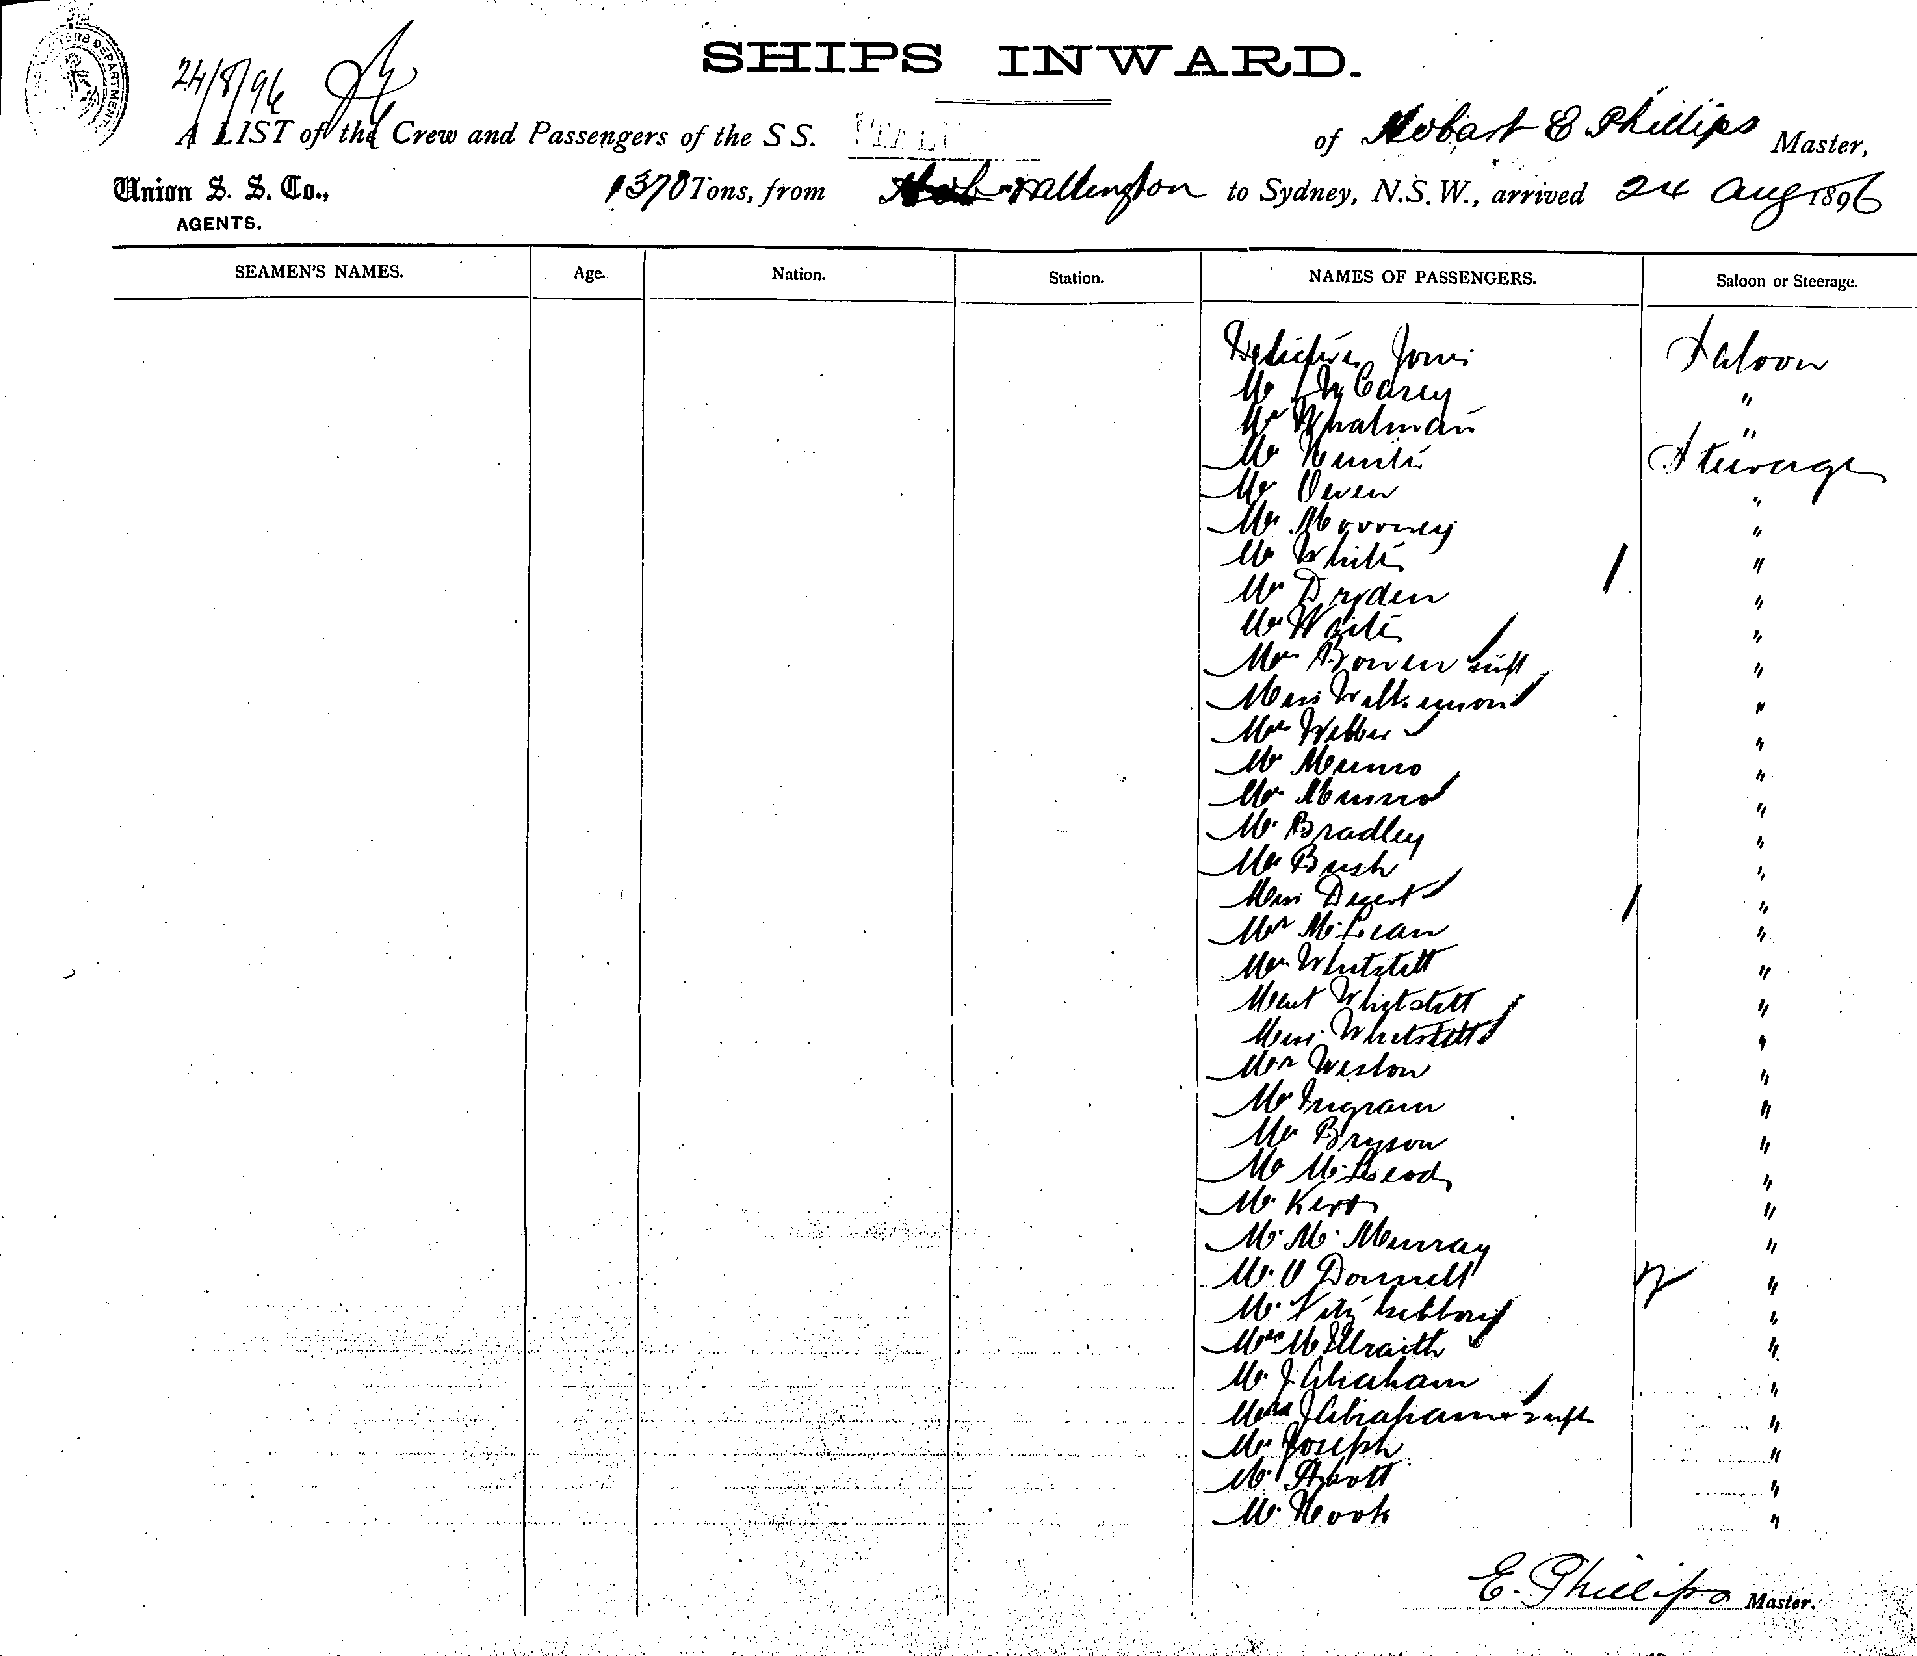 SHIPS INWARD.
24/8/96
A LIST of the Crew and Passengers of the S S. of Hobart E Phillips Master,
Union S. S. Co., 1370 Tons, from Wellington to Sydney, N.S.W., arrived 24 Aug 1896
AGENTS.
SEAMEN'S NAMES. Age. Nation. Station. NAMES OF PASSENGERS. Saloon or Steerage.
Detective Jones Saloon
Mr Carey "
Mr Whatman "
Mr Steerage
Mr Owen "
Mr Mooney "
Mr White "
Mr Dryden "
Mr Waite "
Mrs Bowen & inft "
Miss "
Mrs Webber "
Mr Munro "
Mrs Munro "
Mr Bradley "
Mr Bush "
Miss "
Mr McLean "
Mrs Whitstitt "
Mast Whitstitt "
Miss Whitstitt "
Mrs Weston "
Mr Ingram "
Mr Bryson "
Mr McLeod "
Mr Kerr "
Mr McMurray "
Mr O Donnell "
Mr Fitzgibbons "
Mrs McIlwraith "
Mr J Abraham "
Mrs J Abraham & inft "
Mr Joseph "
Mr Abbott "
Mr Hook "
E. Phillips Master.